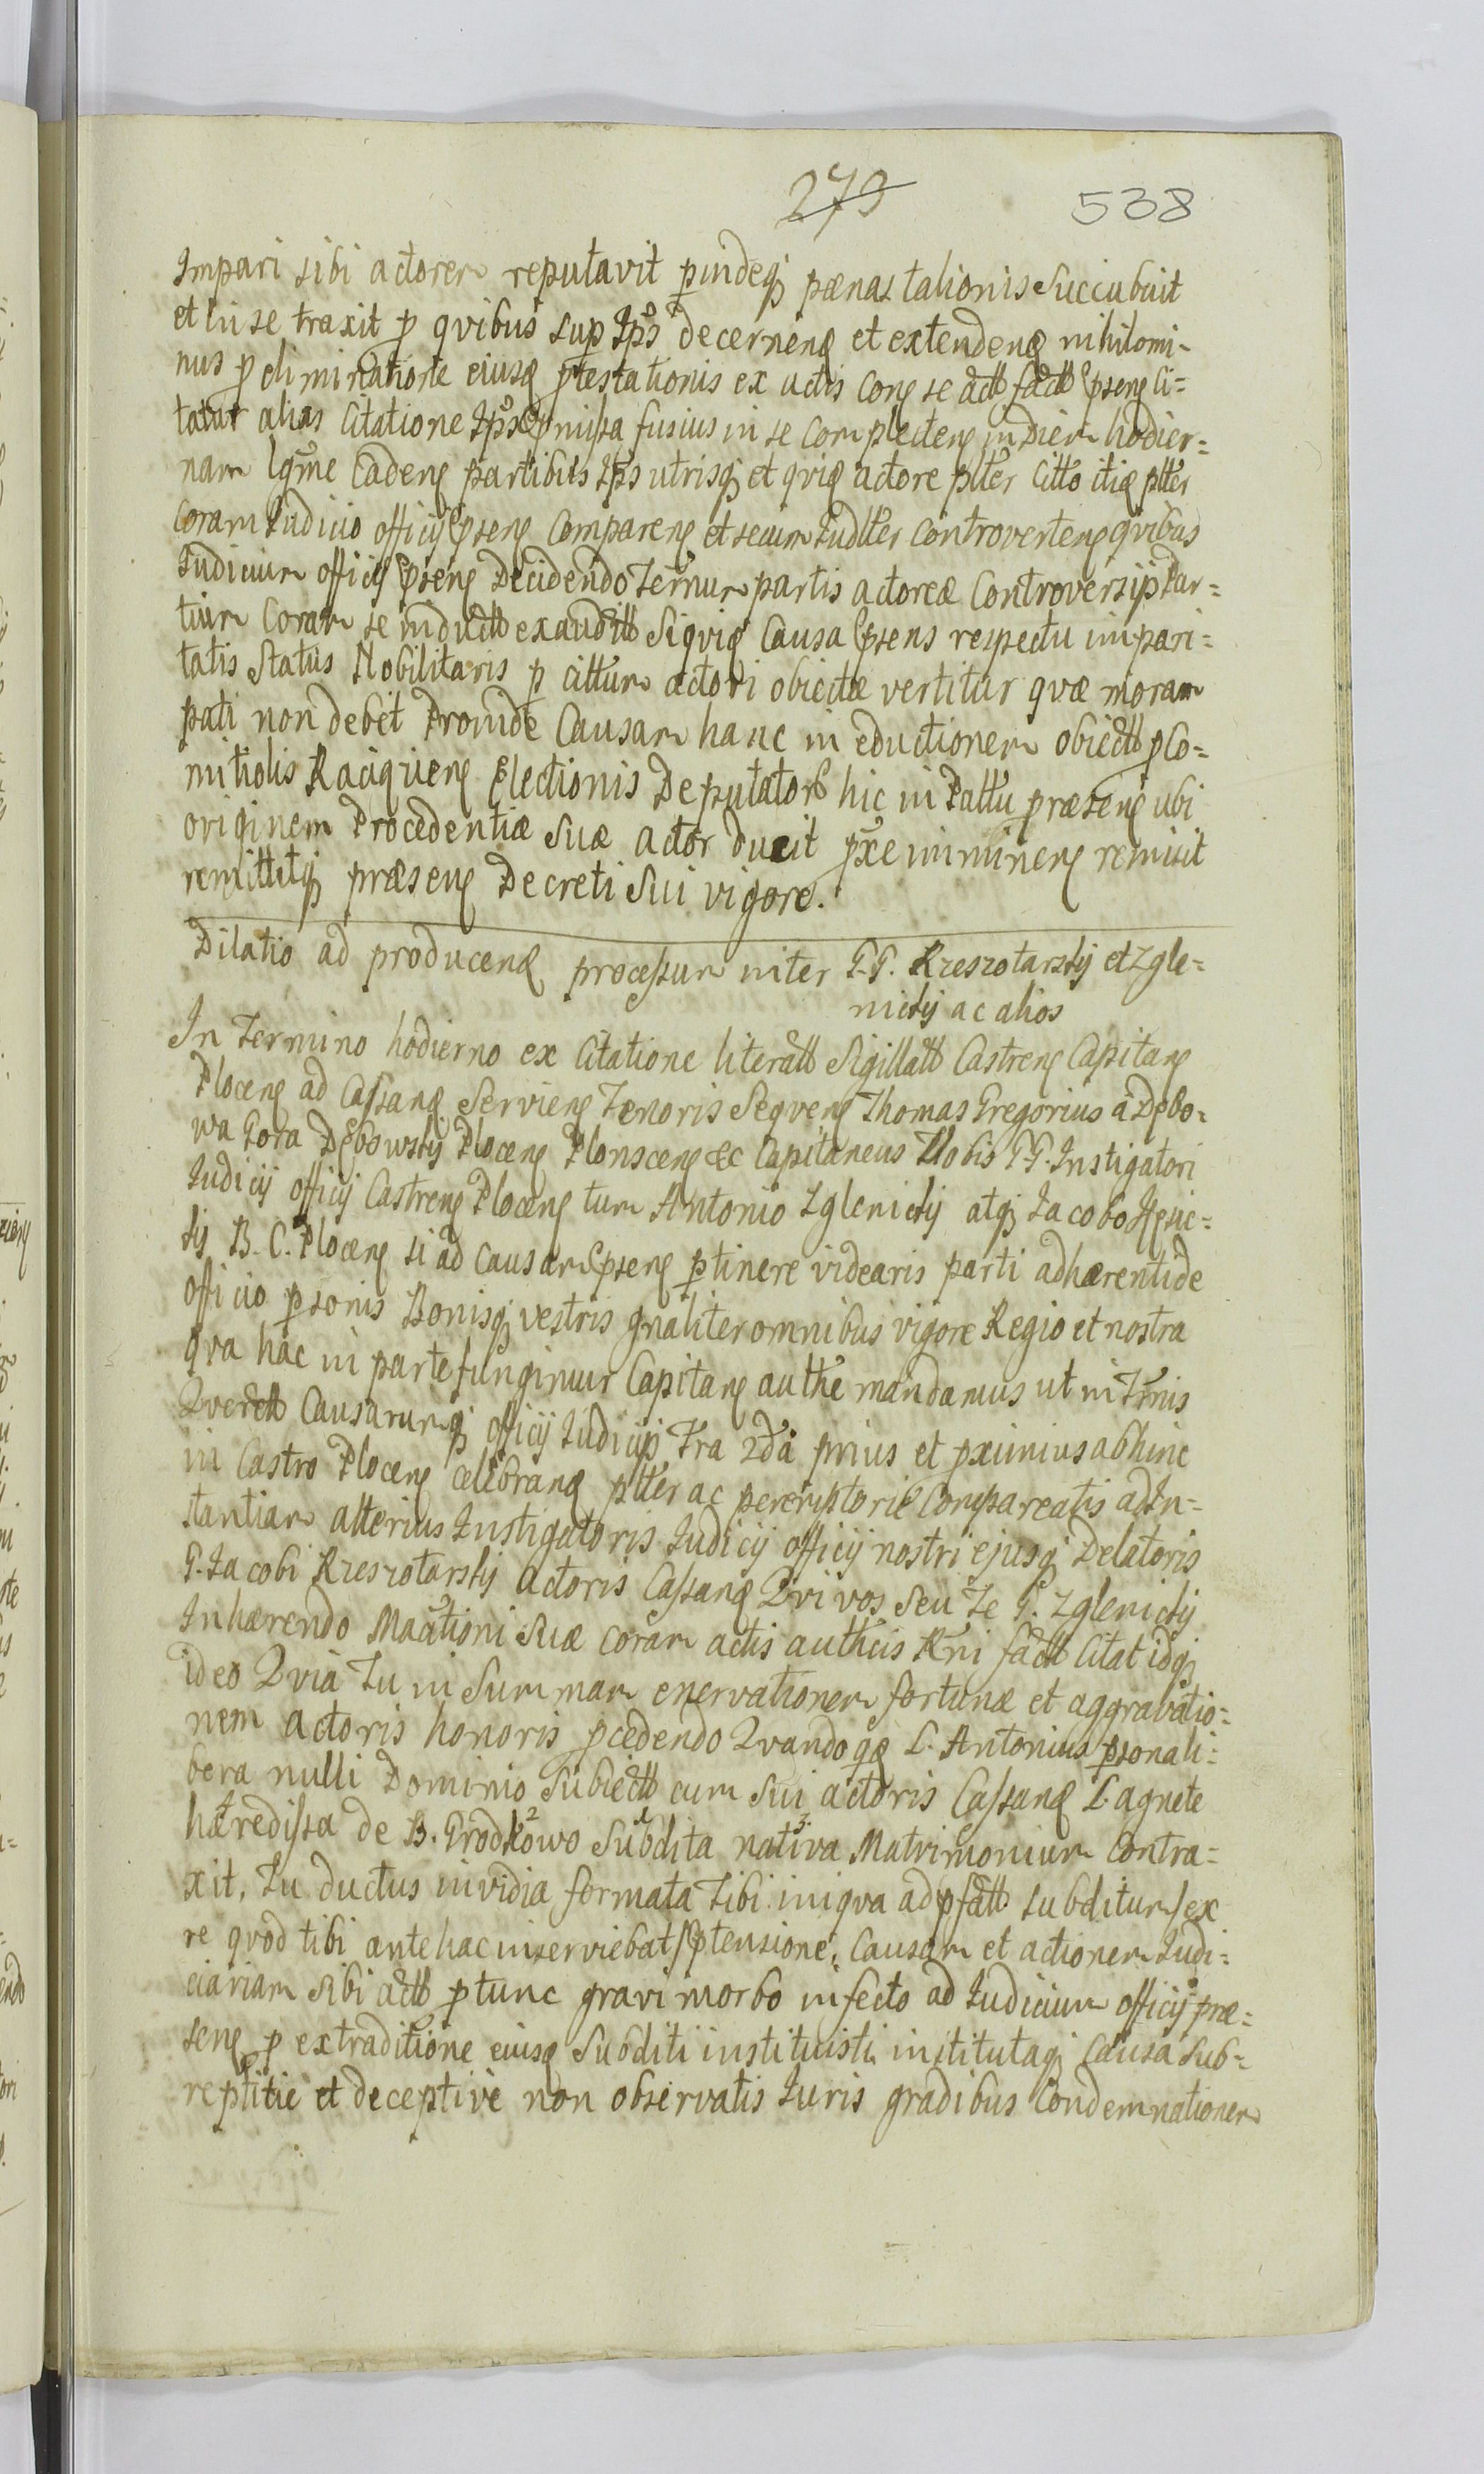 279 538
Impari sibi actorem reputavit pindeq pænas talionis Succubuit
et in se traxit p qvibus sup Ips decernenḍ et extendenḍ nihilomi-
nus p eliminatione eiusḍ ptestationis ex actis Cong se actt factt psenę Ci=
tatur alias Citatione Ips pmissa fusius in se Complectenę in Diem hodier=
nam lgme Cadenę partibus Ips utrisq et qviḍ actore pltter Citto itiḍ pltter
Coram Judicio officij psenę Comparenę et secum Judltter Controvertenę qvibus
Judicium officij psenę Decidendo Ternum partis actoreæ Controversij Par=
tium Coram se inductt exauditt Siqviḍ Causa psens respectu impari=
tatis Status Nobilitaris p cittum actori obiectæ vertitur qvæ moram
pati non debet Proinde Causam hanc in eductionem obiectt p Co=
mitiolis Raciązienę Electionis Deputator hic in Pattu præsenę ubi
originem Procedentiæ Suæ actor ducit pxe imminenę remisit
remittitq præsenę Decreti Sui vigore.
Dilatio ad producenḍ processum inter G.G. Rzeszotarskij et Zgle=
nickij ac alios
In Termino hodierno ex Citatione literatt Sigillatt Castrenę Capitanę
Plocenę ad Cassanḍ Servienę Tenoris Seqvenę Thomas Gregorius á Dębo=
wa Gora Dębowskij Plocenę Plonscenę &c Capitaneus Nobis G.G. Instigatori
Judicij officij Castrenę Plocenę tum Antonio Zglenickij atq Jacobo
kij B. C. Plocenę si ad Causam psenę ptinere videaris parti adhærenti de
officio psonis Bonisq vestris gnaliter omnibus vigore Regio et nostra
qva hac in parte fungimur Capitanę authe mandamus ut in Tmis
Qverett Causarumq officij Judicijq Fra 2da prius et pximius abhinc
in Castro Plocenę celebranḍ pltter ac peremptorie Compareatis ad In=
stantiam alterius Instigatoris Judicij officij nostri ejusq Delatoris
G. Jacobi Rzeszotarskij Actoris Cassanḍ Qvi vos Seu Te G. Zglenickij
Inhærendo Maationi Suæ coram actis autheis Rni factt Citat idq
ideo Qvia Tu in Summam enervationem fortunæ et aggravatio=
nem actoris honoris pcedendo Qvando qḍ L. Antonius psona li=
bera nulli Dominio Subiectt cum Sui actoris Cassanḍ L. agnete
hæredissa de B. Grodkowo Subdita nativa Matrimonium Contra=
xit, Tu ductus invidia formata Tibi iniqva ad pfatt subditum /ex
re qvod tibi antehac inserviebat/ ptensione, Causam et actionem Judi=
ciariam Sibi actt ptunc gravi morbo infecto ad Judicium officij præ=
senę p extraditione eiusḍ Subditi instituisti institutaq Causa Sub=
reptitie et deceptive non observatis Juris gradibus Condemnationem